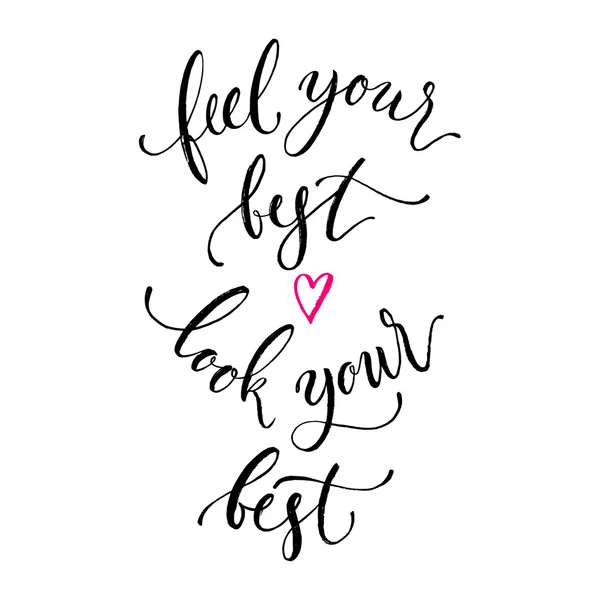 feel your
best
look your
best